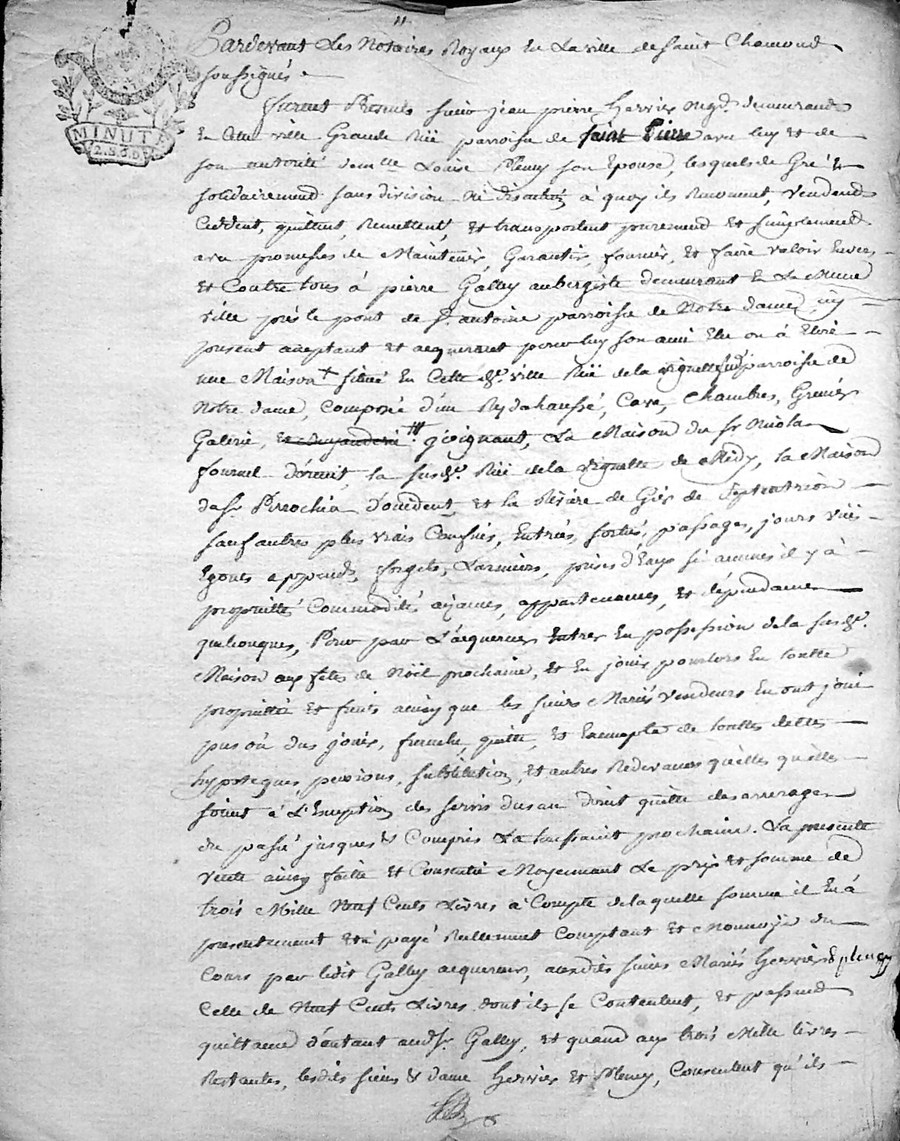 Pardevant Les Notaires Royaux en La ville de Saint Chamond
soussignés
MINUTE
2.S.6.D
furent Presents sieur jean pierre Herviés demeurand
en cette ville Grande Rüe parroisse de Saint Pierre avec luy et de
son autorité Louise Fleury son Epouse, lesquels de Gré et
solidairement sans division à quoy ils Renoncent, vendend
Ceddent, quittent, Remettent, et transportent purement et simplement
avec promesses de Maintenir, Garantir, fournir, et faire valoir Envers
et Contre tous à pierre Galley aubergiste demeurant En La Meme
ville prés le pont de St. antoine parroisse de Notre dame, icy
present aceptant et aequereur pour luy son ami Elu ou à Elire
une Maison + située En Cette de. ville Rüe de la vignette parroisse de
Notre dame, Composée d'un Reydahaussé, Cave, Chambres, Greniés
Galerie, joignant, La Maison du Sr Nicolas
fournel d'orient, la susde. Rüe de la vignette de Midy, la Maison
du Sr d'occident, et la Riviere de Giés de Septentrion
sauf autres plus vrais Confins, Entrées, sorties, passages, jours vües
Egouts appends, forgets, Larmiers, prises d'Eaux si aucunes il y à
proprietté Commodités aysances, appartenances, et dépendances
quelconques, Pour par L'aequereur Entrer En possession de la susde.
Maison aux fetes de Noël prochaine, et En jouir pourlors En toutte
proprietté et fruits ainsy que les sieurs Mariés vendeurs En ont joüi
pus où dus joüir, franche, quitte, et Exempte de touttes dettes
hypoteques pensions, substitution, et autres Redevances quelles quelles
soient à L'Exception des servis dus au direct quitte des arrerages
du passé jusques et Compris La toussaint prochaine. La presente
vente ainsy faitte et Consentie Moyennant Le prix et somme de
trois Mille Neuf Cents Livres à Compte de laquelle somme il En à
presentement eté payé Reellement Comptant et Monnoye du
Cours par ledit Galley aequereur, auxdits sieurs Mariés Herviés & fleury
Celle de Neuf Cents Livres dont ils se Contentent, et passend
quittance d'autant audSr. Galley, et quand aux trois Mille livres
Restantes, lesdits sieurs & dame Herviés et Fleury, Consentent qu'ils